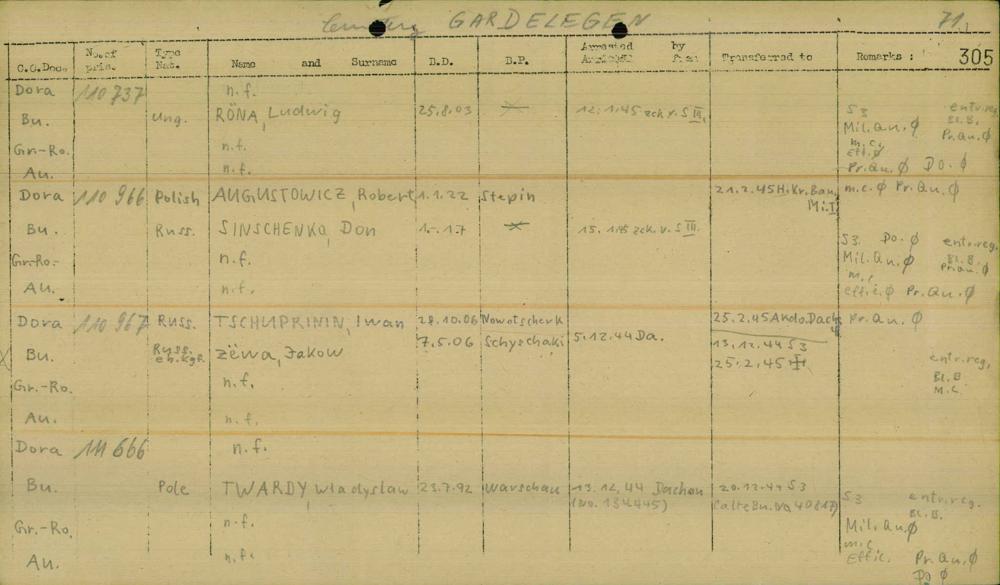 Cemetery GARDELEGEN 71.
C.C.Doc. No. of pris. Type Nat. Name and Surname B.D. B.P. Arrested Arrived by from Transferred to Remarks : 305
Dora 110 737 n.f.
Bu. Ung. RÖNA, Ludwig 25.8.03 12.1.45 zck v. S III. S3 entr.reg. Bl.B.
Mil.Qu. Ø Pr.Qu. Ø
Gr.-Ro. n.f. m.c. Eff. Ø
Au. n.f. Pr.Qu. Ø Do. Ø
Dora 110 966 Polish AUGUSTOWICZ, Robert 1.1.22 Stepin 21.2.45 H.Kr.Bau, Mi.I m.c. Ø Pr.Qu. Ø
Bu. Russ. SINSCHENKO, Don 1.-.17 15.1.45 zck. v. S III. S3 Do. Ø entr.reg.
Gr.-Ro.- n.f. Mil.Qu. Ø Bl.B. Pr.Qu. Ø
m.c
Au. n.f. effic. Ø Pr.Qu. Ø
Dora 110 967 Russ. TSCHUPRININ, Iwan 28.10.06 Nowotscherk 25.2.45 AKdo.Dach Pr.Qu. Ø
Bu. Russ. eh.Kgf. ZËWA, Jakow 7.5.06 Schyschaki 5.12.44 Da. 13.12.44 S3
25.2.45 entr.reg.
Gr.-Ro. n.f. Bl.B
M.C.
Au. n.f.
Dora 111 666 n.f.
Bu. Pole TWARDY, Wladyslaw 23.7.92 Warschau 13.12.44 Dachau 20.12.44 S3 S3 entr.reg.
(No. 134445) (alte Bu. No 40817) Bl.B.
Gr.-Ro. n.f. Mil.Qu. Ø
m.c
Au. n.f. Effic. Pr.Qu. Ø
Do Ø